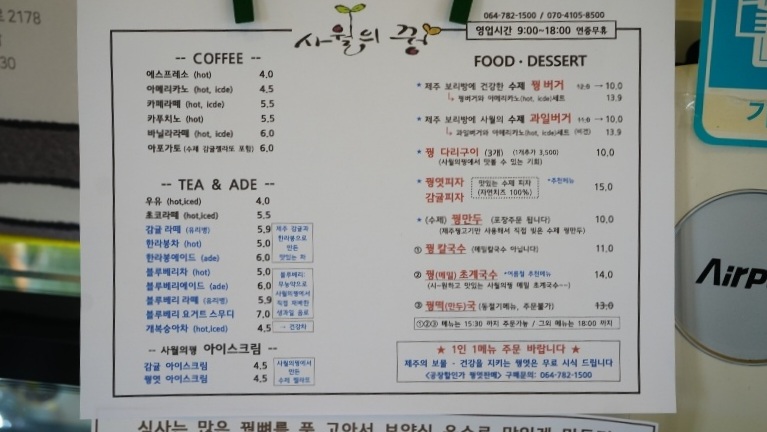 사월의 꿩
064-782-1500 / 070-4105-8500
영업시간 9:00~18:00 연중무휴
-- COFFEE --
에스프레소 (hot) 4,0
아메리카노 (hot, icde) 4,5
카페라떼 (hot, icde) 5,5
카푸치노 (hot) 5,5
바닐라라떼 (hot, icde) 6,0
아포가토 (수제 감귤젤라또 포함) 6,0
-- TEA & ADE --
우유 (hot,iced) 4,0
초코라떼 (hot,iced) 5,5
감귤 라떼 (유리병) 5,9
한라봉차 (hot) 5,0
한라봉에이드 (ade) 6,0
제주 감귤과
한라봉으로
만든
맛있는 차
블루베리차 (hot) 5,0
블루베리에이드 (ade) 6,0
블루베리 라떼 (유리병) 5,9
블루베리 요거트 스무디 7,0
블루베리:
무농약으로
사월의꿩에서
직접 재배한
생과일 음료
개복숭아차 (hot,iced) 4,5
- 건강차
-- 사월의꿩 아이스크림 --
감귤 아이스크림 4,5
꿩엿 아이스크림 4,5
사월의꿩에서
만든
수제 젤라또
FOOD · DESSERT
* 제주 보리빵에 건강한 수제 꿩 버거 12,0 → 10,0
꿩버거와 아메리카노(hot, icde)세트 13.9
* 제주 보리빵에 사월의 수제 과일버거 11,0 → 10,0
과일버거와 아메리카노(hot, icde)세트 (비건) 13.9
* 꿩 다리구이 (3개) (1개추가 3,500) 10,0
(사월의꿩에서 맛볼 수 있는 기회)
* 꿩엿피자
감귤피자
맛있는 수제 피자
(자연치즈 100%)
*추천메뉴
15.0
* (수제) 꿩만두 (포장주문 됩니다) 10,0
(제주꿩고기만 사용해서 직접 빚은 수제 꿩만두)
① 꿩 칼국수 (메밀칼국수 아닙니다) 11,0
② 꿩(메밀)초계국수 *여름철 추천메뉴 14,0
(시~원하고 맛있는 사월의꿩 메밀 초계국수~~)
③ 꿩떡(만두)국 (동절기메뉴, 주문불가) 13,0
①②③ 메뉴는 15:30 까지 주문가능 / 그외 메뉴는 18:00 까지
★ 1인 1메뉴 주문 바랍니다 ★
제주의 보물 - 건강을 지키는 꿩엿은 무료 시식 드립니다
<공장할인가 꿩엿판매> 구매문의: 064-782-1500
2178
30
AirP